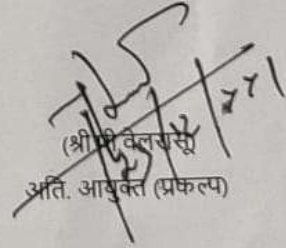 (श्री पी वेलरासू)
अति. आयुक्त (प्रकल्प)